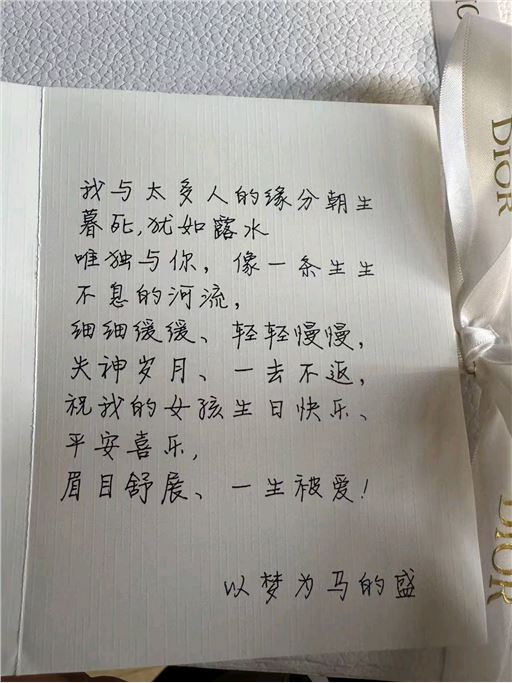 我与太多人的缘分朝生
暮死,犹如露水
唯独与你，像一条生生
不息的河流，
细细缓缓、轻轻慢慢，
失神岁月、一去不返，
祝我的女孩生日快乐、
平安喜乐，
眉目舒展、一生被爱！
以梦为马的盛
DIOR
DIOR